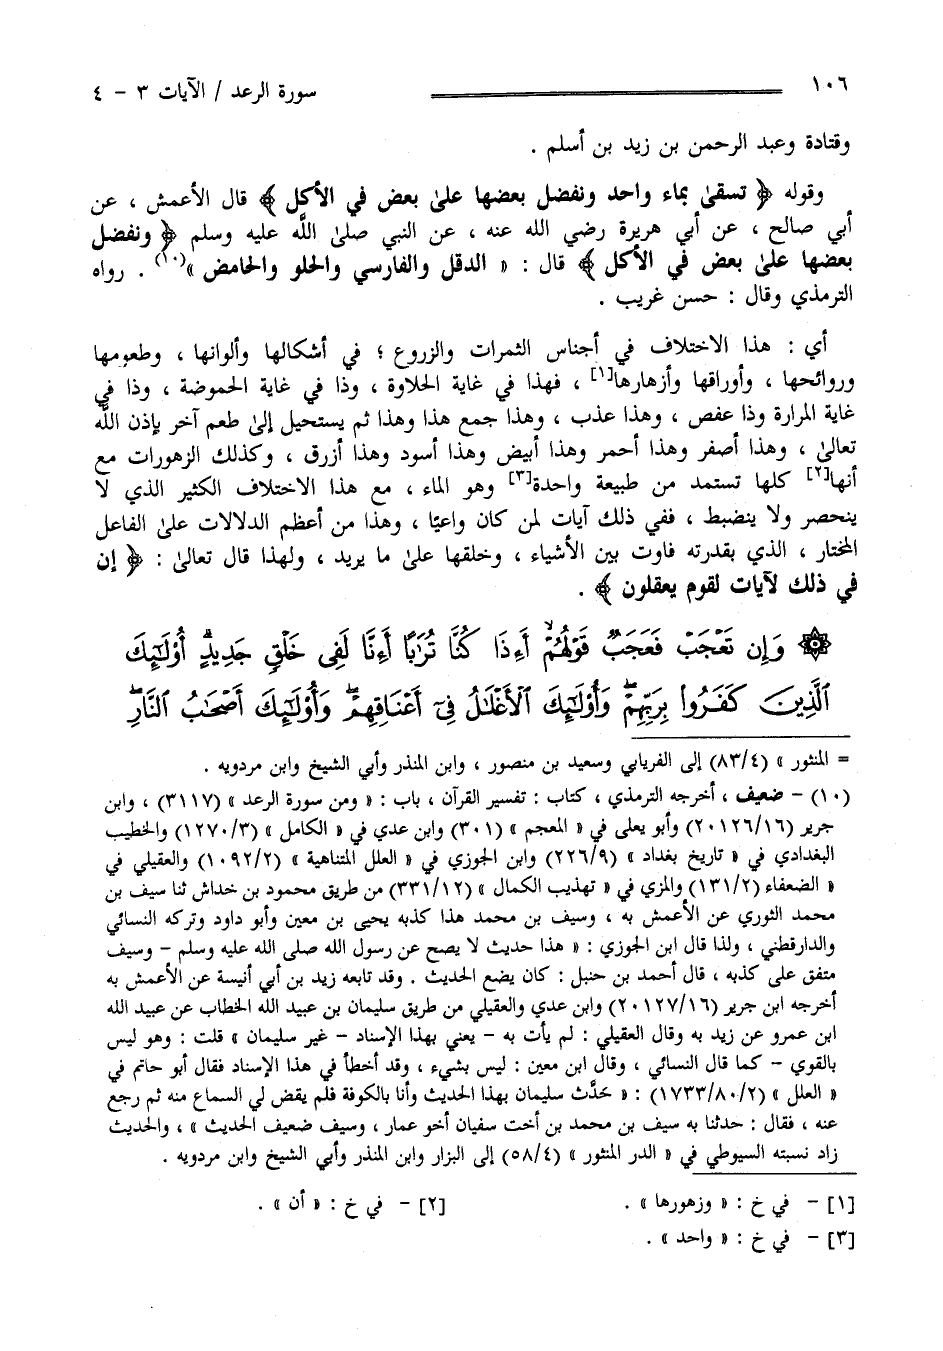 ١٠٦ سورة الرعد / الآيات ٣ - ٤
وقتادة وعبد الرحمن بن زيد بن أسلم .
وقوله ﴿ تسقىٰ بماء واحد ونفضل بعضها علىٰ بعض في الأكل ﴾ قال الأعمش ، عن
أبي صالح ، عن أبي هريرة رضي الله عنه ، عن النبي صلىٰ اللَّه عليه وسلم ﴿ ونفضل
بعضها علىٰ بعض في الأكل ﴾ قال : « الدقل والفارسي والحلو والحامض »(١٠) . رواه
الترمذي وقال : حسن غريب .
أي : هذا الاختلاف في أجناس الثمرات والزروع ؛ في أشكالها وألوانها ، وطعومها
وروائحها ، وأوراقها وأزهارها[١] ، فهذا في غاية الحلاوة ، وذا في غاية الحموضة ، وذا في
غاية المرارة وذا عفص ، وهذا عذب ، وهذا جمع هذا وهذا ثم يستحيل إلىٰ طعم آخر بإذن اللَّه
تعالىٰ ، وهذا أصفر وهذا أحمر وهذا أبيض وهذا أسود وهذا أزرق ، وكذلك الزهورات مع
أنها[٢] كلها تستمد من طبيعة واحدة[٣] وهو الماء ، مع هذا الاختلاف الكثير الذي لا
ينحصر ولا ينضبط ، ففي ذلك آيات لمن كان واعيًا ، وهذا من أعظم الدلالات علىٰ الفاعل
المختار ، الذي بقدرته فاوت بين الأشياء ، وخلقها علىٰ ما يريد ، ولهذا قال تعالىٰ : ﴿ إن
في ذلك لآيات لقوم يعقلون ﴾ .
۞ وَإِن تَعْجَبْ فَعَجَبٌ قَوْلُهُمْ أَءِذَا كُنَّا تُرَٰبًا أَءِنَّا لَفِى خَلْقٍ جَدِيدٍ أُوْلَٰٓئِكَ
ٱلَّذِينَ كَفَرُوا۟ بِرَبِّهِمْ وَأُوْلَٰٓئِكَ ٱلْأَغْلَٰلُ فِىٓ أَعْنَاقِهِمْ وَأُوْلَٰٓئِكَ أَصْحَٰبُ ٱلنَّارِ
= المنثور » (٨٣/٤) إلى الفريابي وسعيد بن منصور ، وابن المنذر وأبي الشيخ وابن مردويه .
(١٠) - ضعيف ، أخرجه الترمذي ، كتاب : تفسير القرآن ، باب : « ومن سورة الرعد » (٣١١٧) ، وابن
جرير (٢٠١٢٦/١٦) وأبو يعلى في « المعجم » (٣٠١) وابن عدي في « الكامل » (١٢٧٠/٣) والخطيب
البغدادي في « تاريخ بغداد » (٢٢٦/٩) وابن الجوزي في « العلل المتناهية » (١٠٩٢/٢) والعقيلي في
« الضعفاء (١٣١/٢) والمزي في « تهذيب الكمال » (٣٣١/١٢) من طريق محمود بن خداش ثنا سيف بن
محمد الثوري عن الأعمش به ، وسيف بن محمد هذا كذبه يحيى بن معين وأبو داود وتركه النسائي
والدارقطني ، ولذا قال ابن الجوزي : « هذا حديث لا يصح عن رسول الله صلى الله عليه وسلم - وسيف
متفق على كذبه ، قال أحمد بن حنبل : كان يضع الحديث . وقد تابعه زيد بن أبي أنيسة عن الأعمش به
أخرجه ابن جرير (٢٠١٢٧/١٦) وابن عدي والعقيلي من طريق سليمان بن عبيد الله الخطاب عن عبيد الله
ابن عمرو عن زيد به وقال العقيلي : لم يأت به - يعني بهذا الإسناد - غير سليمان » قلت : وهو ليس
بالقوي - كما قال النسائي ، وقال ابن معين : ليس بشيء ، وقد أخطأ في هذا الإسناد فقال أبو حاتم في
« العلل » (١٧٣٣/٨٠/٢) : « حَدَّث سليمان بهذا الحديث وأنا بالكوفة فلم يقض لي السماع منه ثم رجع
عنه ، فقال : حدثنا به سيف بن محمد بن أخت سفيان أخو عمار ، وسيف ضعيف الحديث » ، والحديث
زاد نسبته السيوطي في « الدر المنثور » (٥٨/٤) إلى البزار وابن المنذر وأبي الشيخ وابن مردويه .
[١] - في خ : « وزهورها » . [٢] - في خ : « أن » .
[٣] - في خ : « واحد » .